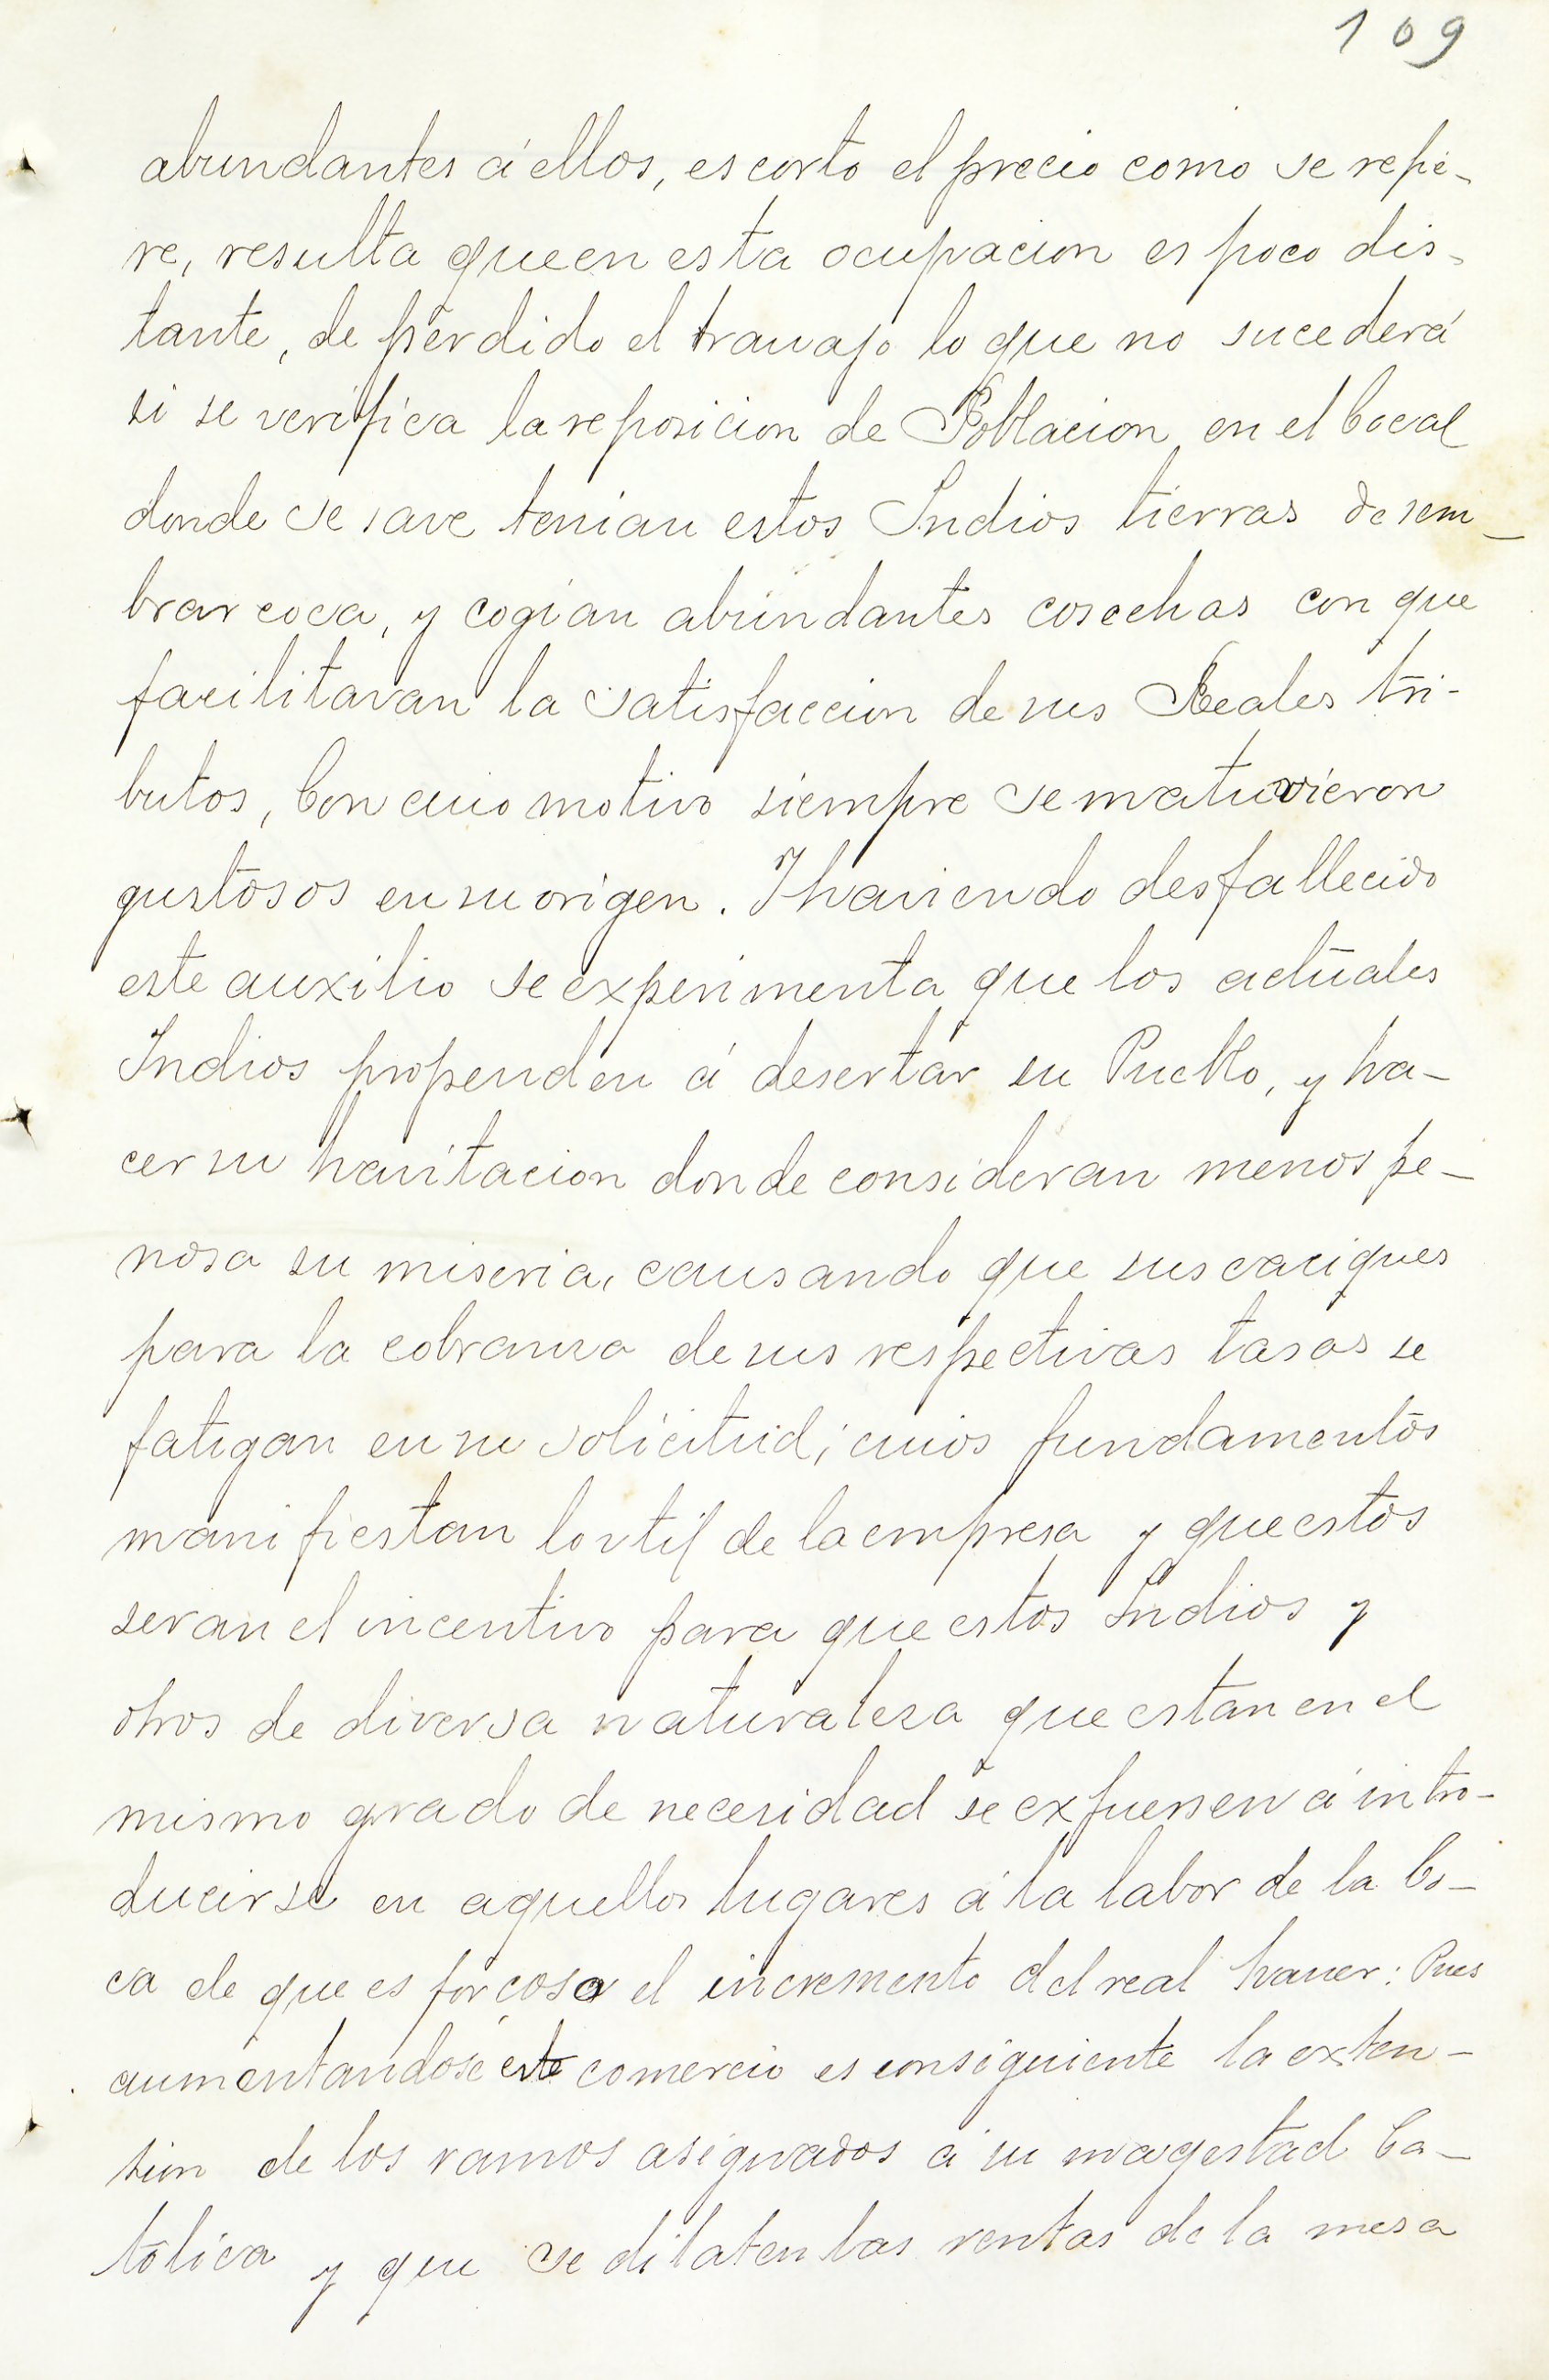 109
abundantes á ellos, es corto el precio como se refie-
re, resulta que en esta ocupacion es poco dis-
tante, de perdido el travajo lo que no sucederá
si se verifica la reposicion de Poblacion en el Cocal
donde se save tenian estos Indios tierras de sem-
brar coca, y cogian abundantes cosechas con que
facilitavan la satisfaccion de sus Reales tri-
butos, Con cuio motivo siempre se matuvieron
gustosos en su origen. I haviendo desfallecido
este auxilio se experimenta que los actuales
Indios propenden á desertar su Pueblo, y ha-
cer su havitacion donde consideran menos pe-
nosa su miseria, causando que sus caciques
para la cobransa de sus respectivas tasas se
fatigan en su solicitud; cuios fundamentos
manifiestan lo vtil de la empresa y que estos
seran el incentivo para que estos Indios y
otros de diversa naturalesa que estan en el
mismo grado de necesidad se exfuersen á intro-
ducirse en aquellos lugares á la labor de la Co-
ca de que es forcoso el incremento del real haver: Pues
aumentandose este comercio es consiguiente la exten-
sion de los ramos asignados á su magestad Ca-
tolica y que se dilaten las rentas de la mesa